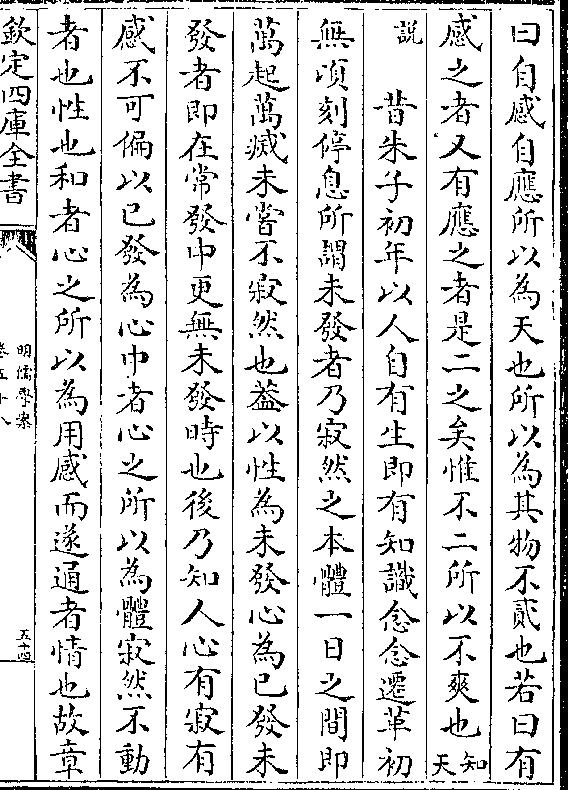 曰自感自應所以為天也所以為其物不貳也若曰有
感之者又有應之者是二之矣惟不二所以不爽也知天
説　昔朱子初年以人自有生即有知識念念遷革初
無頃刻停息所謂未發者乃寂然之本體一日之間即
萬起萬滅未嘗不寂然也蓋以性為未發心為已發未
發者即在常發中更無未發時也後乃知人心有寂有
感不可偏以已發為心中者心之所以為體寂然不動
者也性也和者心之所以為用感而遂通者情也故章
欽定四庫全書
明儒學案
卷五十八
五十四